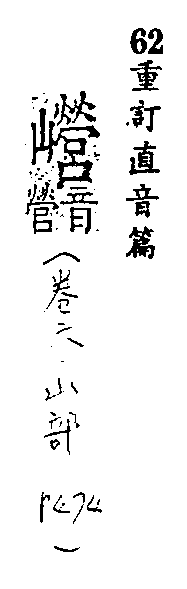 62重訂直音篇
巆音營（卷六·山部 P474）